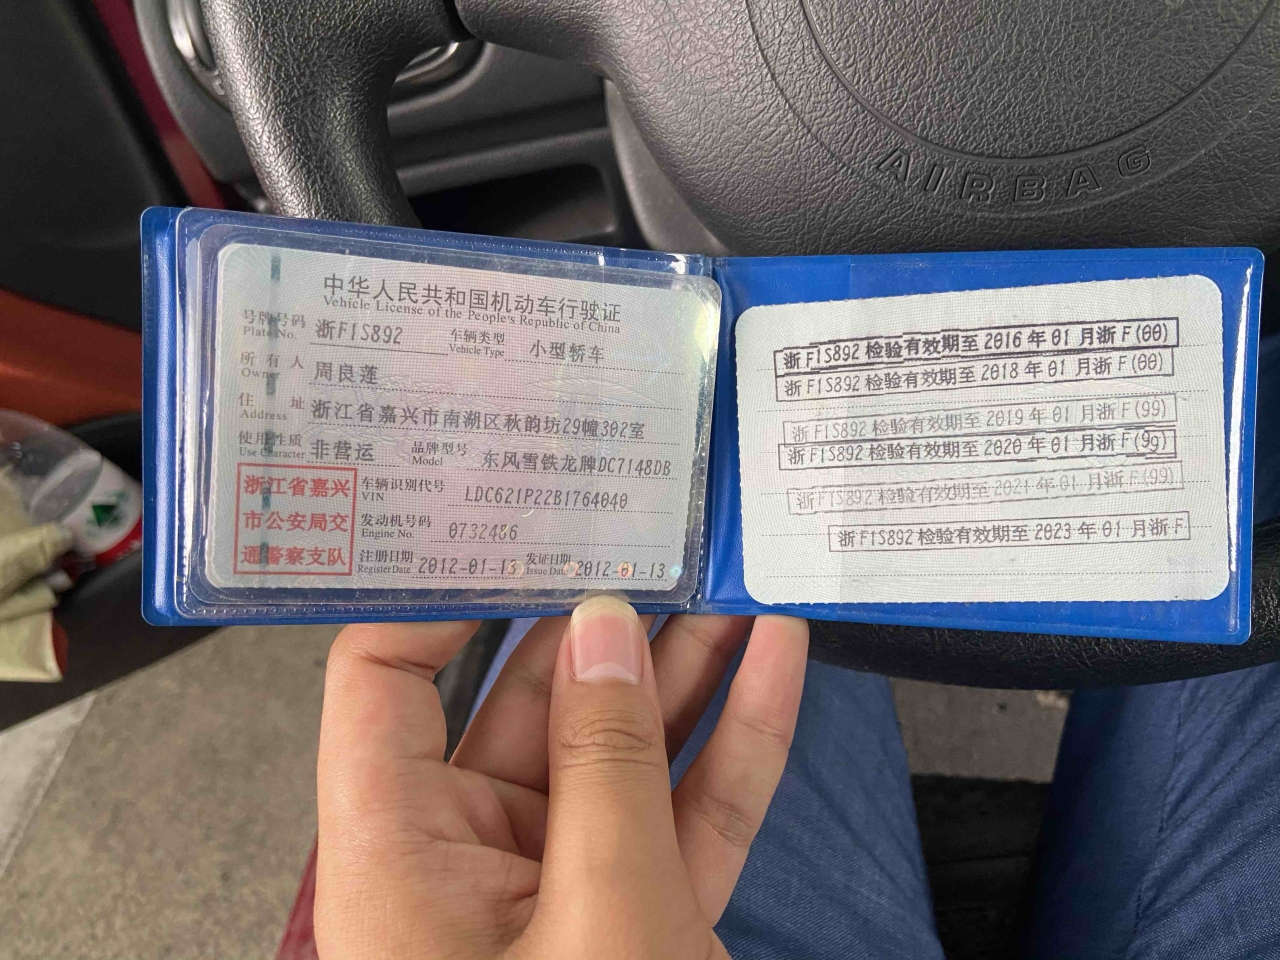 AIRBAG
中华人民共和国机动车行驶证
Vehicle License of the People's Republic of China
号牌号码 浙F1S892 车辆类型 小型轿车
Plate No. Vehicle Type
所有人 周良莲
Owner
住址 浙江省嘉兴市南湖区秋韵坊29幢302室
Address
使用性质 非营运 品牌型号 东风雪铁龙牌DC7148DB
Use Character Model
浙江省嘉兴
市公安局交
通警察支队
车辆识别代号 LDC621P22B1764040
VIN
发动机号码 0732486
Engine No.
注册日期 2012-01-13 发证日期 2012-01-13
Register Date Issue Date
浙F1S892 检验有效期至 2016 年 01 月浙 F(00)
浙 F1S892 检验有效期至 2018 年 01 月浙 F(00)
浙 F1S892 检验有效期至 2019 年 01 月浙 F(99)
浙 F1S892 检验有效期至 2020 年 01 月浙 F(99)
浙F1S892 检验有效期至 2021 年 01 月浙F(99)
浙 F1S892 检验有效期至 2023 年 01 月浙 F